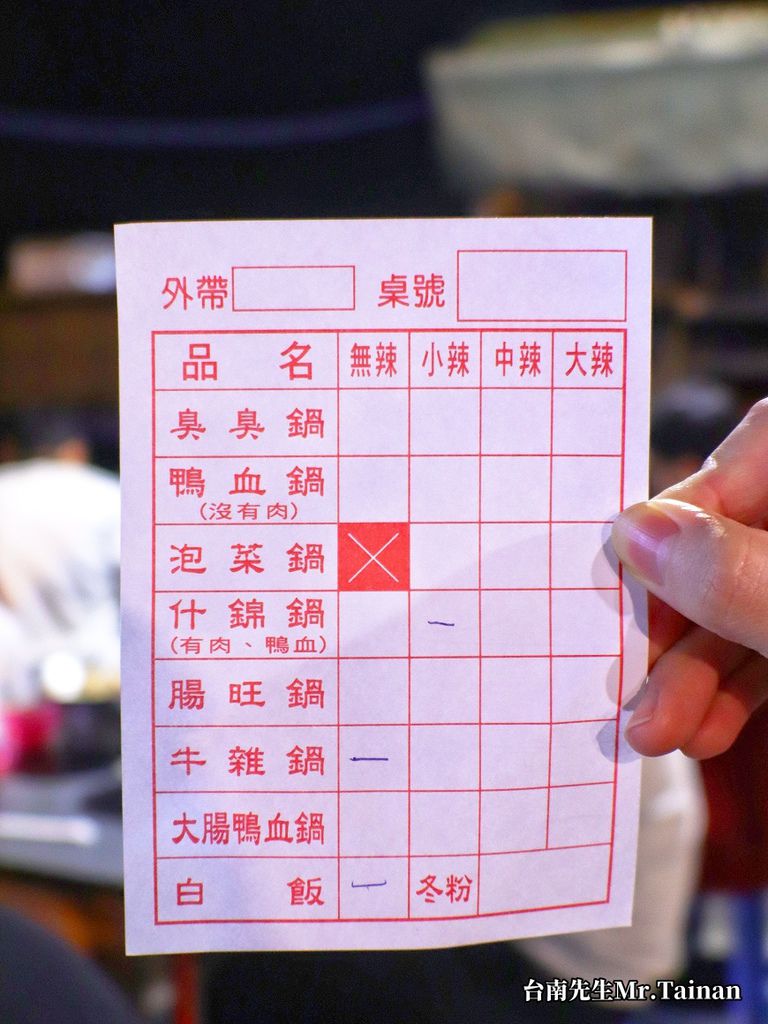 外帶 桌號
品名 無辣 小辣 中辣 大辣
臭臭鍋
鴨血鍋
(沒有肉)
泡菜鍋
什錦鍋 一
(有肉、鴨血)
腸旺鍋
牛雜鍋 一
大腸鴨血鍋
白飯 一 冬粉
台南先生Mr.Tainan